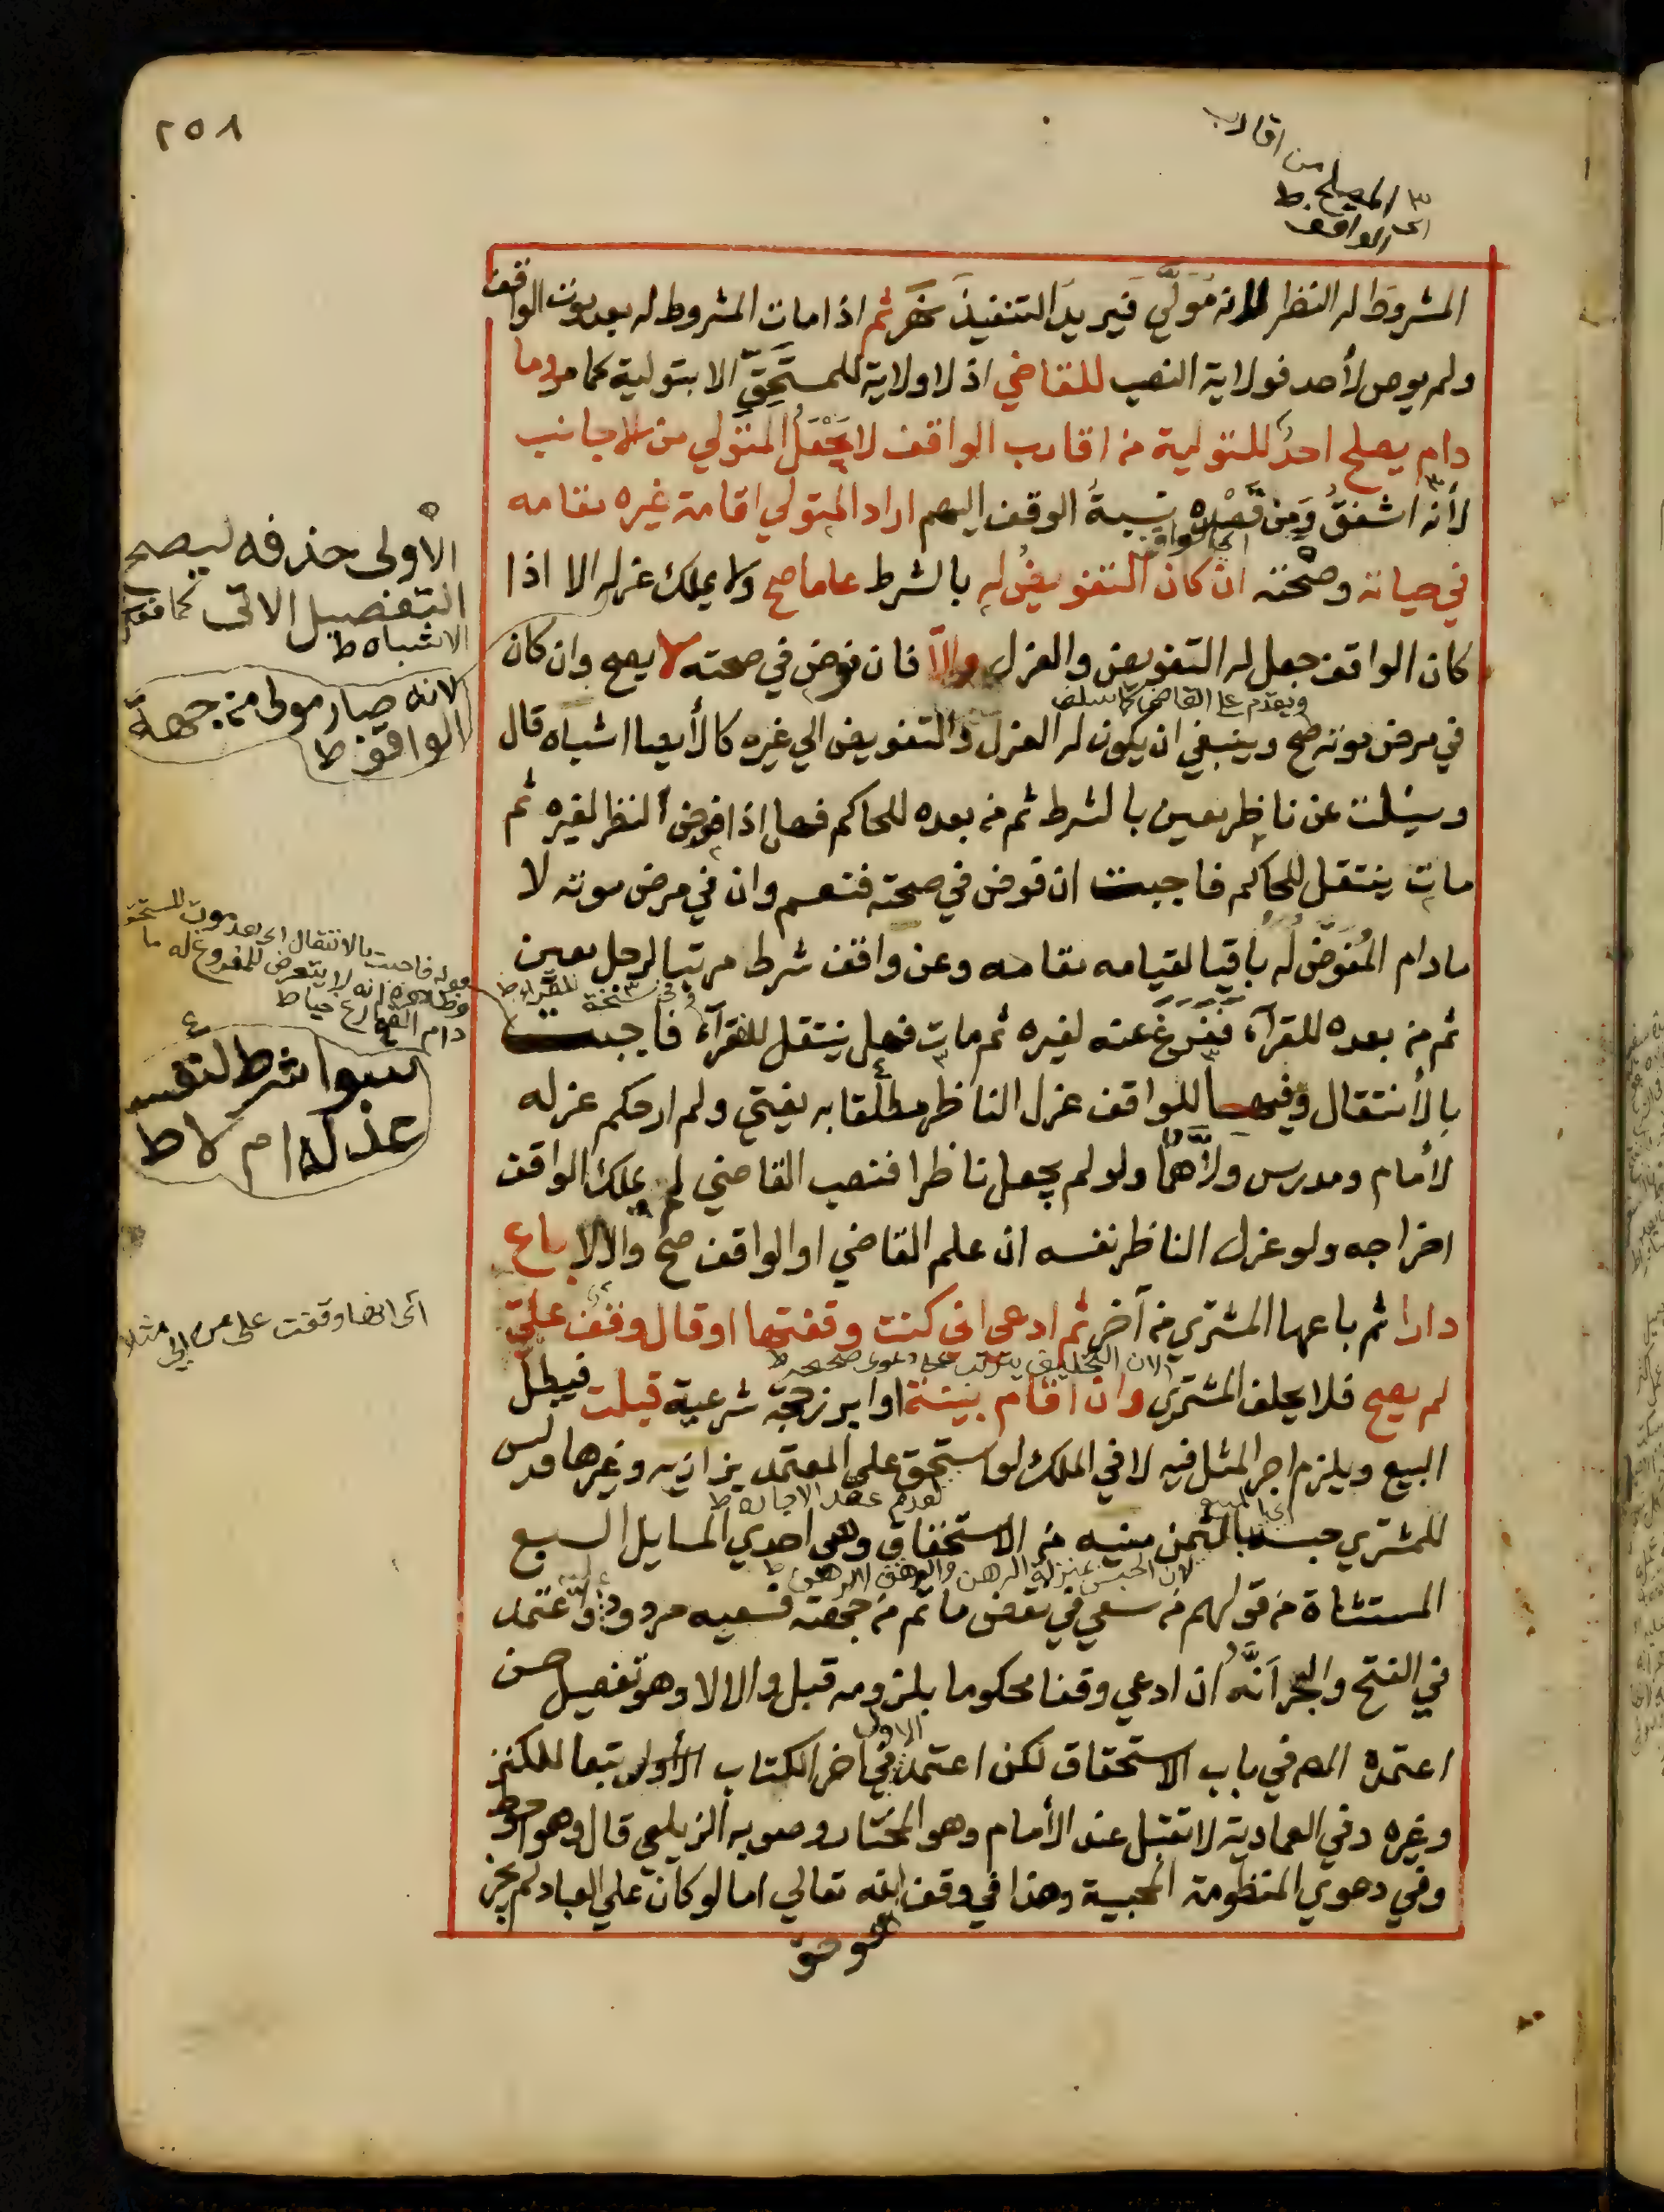 ٢٥٨
من اقارب
٣ المصلح ط
اى الواقف
المشروط له النظر لانه مولّى فيريد التنفيذ نهر ثم اذا مات المشروط له بعد موت الواقف
ولم يوص لأحد فولاية النصب للقاضي اذ لا ولاية للمستحِقّ الا بتولية كما مر وما
دام يصلح احد للتولية من اقارب الواقف لا يجعل المتولي من الاجانب
لأنه اشفق ومن قصده نسبة الوقف اليهم اراد المتولي اقامة غيره مقامه
اى الواقف
في حياته وصحته ان كان التفويض له بالشرط عاما صح ولا يملك عزله الا اذا
كان الواقف جعل له التفويض والعزل والّا فان فوض في صحته لا يصح وان كان
ويقدم على القاضي كما سلف
في مرض موته صح وينبغي ان يكون له العزل والتفويض الي غيره كالأيصا اشباه قال
وسئلت عن ناظر معين بالشرط ثم من بعده للحاكم فهل اذا فوض النظر لغيره ثم
مات ينتقل للحاكم فاجبت ان فوض في صحته فنعم وان في مرض موته لا
مادام المُفَوَّض له باقيا لقيامه مقامه وعن واقف شرط مرتبا لرجل معين
وفي نسخة للفقراء ط
ثم من بعده للقرآء ففرغ عنه لغيره ثم مات فهل ينتقل للفقرآء فاجبت
بالأنتقال وفيها للواقف عزل الناظر مطلقا به يفتي ولم ار حكم عزله
لأمام ومدرس ولّاهما ولو لم يجعل ناظرا فنصب القاضي لم يملك الواقف
اخراجه ولو عزل الناظر نفسه ان علم القاضي او الواقف صح والا لا باع
دارا ثم باعها المشتري من آخر ثم ادعى اني كنت وقفتها او قال وقف عليّ
لان التحليف يترتب على دعوى صحيحه ط
لم يصح فلا يحلف المشتري وان اقام بينة او ابرز حجة شرعية قبلت فيبطل
البيع ويلزم اجر المثل فيه لا في الملك لو استحق على المعتمد بزازيه وغيرها وليس
لعدم عقد الاجاره ط
اى المبيع
للمشتري حبسه بالثمن منيه من الاستحقاق وهي احدي المسايل السبع
لان الحبس بمنزلة الرهن والوقف لا يرهن ط
المستثناة من قولهم من سعي في نقض ما تم من جهته فسعيه مردود عليه واعتمد
في الفتح والبحر اَنَّهُ ان ادعي وقفا محكوما بلزومه قبل والا لا وهو تفصيل حسن
الاول
اعتمده المص في باب الاستحقاق لكن اعتمد في اخر الكتاب الأول تبعا للكنز
وغيره وفي العمادية لا تقبل عند الأمام وهو المختار وصوبه الزيلعي قال وهو احوط
وفي دعوي المنظومة المحبية وهذا في وقف الله تعالي اما لو كان علي العباد لم يجز
الاولى حذفه ليصح
التفصيل الاتى كما فى
الاشباه ط
لانه صار مولى من جهة
الواقف ط
قوله فاجبت بالانتقال اى بعد موت المستحق
وظاهره انه لا يتعرض للمفروغ له ما
دام الفارغ حيا ط
٤
سوا شرط لنفسه
عزله ام لا ط
اى انها وقفت على من الى مثلا